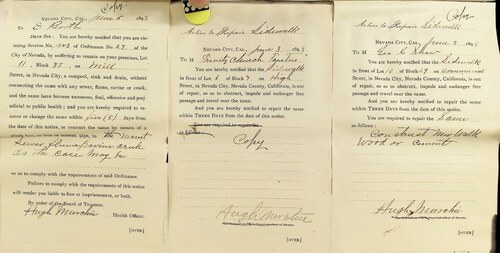 Copy
NEVADA CITY, CAL., June 5 189
To E Roth
DEAR SIR: You are hereby notified that you are violating Section No. of Ordinance No. of Nevada City, by suffering to remain on your premises, Lot
11, Block 35 on Mill
Street, in Nevada City, a cesspool, sink and drain, without
connecting the same with any sewer, flume, ravine or creek,
and the same have become nauseous, foul, offensive and prejudicial to public health; and you are hereby required to remove or change the same within five (5) days from
the date of this notice, or connect the same by means of a
pipe, to the
Sewer flume ravine creek
as the case may be
so as to comply with the requirements of said Ordinance.
Failure to comply with the requirements of this notice
will render you liable to fine or imprisonment, or both.
By order of the Board of Trustees.
Hugh Murchie
Health Officer.
[OVER]
Notice to Repair Sidewalk
NEVADA CITY, CAL., June 3 189
To M Trinity Church Trustees
You are hereby notified that the Sidewalk
in front of Lot 6 of Block 7 on High
Street, in Nevada City, Nevada County, California, is out
of repair, so as to obstruct, impede and endanger free
passage and travel over the same.
And you are hereby notified to repair the same within
THREE DAYS from the date of this notice.
You are required to repair
Copy
Hugh Murchie
[OVER]
Copy
Notice to Repair Sidewalk
NEVADA CITY, CAL., June 3 189
To M Geo C Shaw
You are hereby notified that the Sidewalk
in front of Lot 10 of Block 29 on Commercial
Street, in Nevada City, Nevada County, California, is out
of repair, so as to obstruct, impede and endanger free
passage and travel over the same.
And you are hereby notified to repair the same within
THREE DAYS from the date of this notice.
You are required to repair the Same
as follows:
Construct new Walk
Wood or Cement
Hugh Murchie
[OVER]